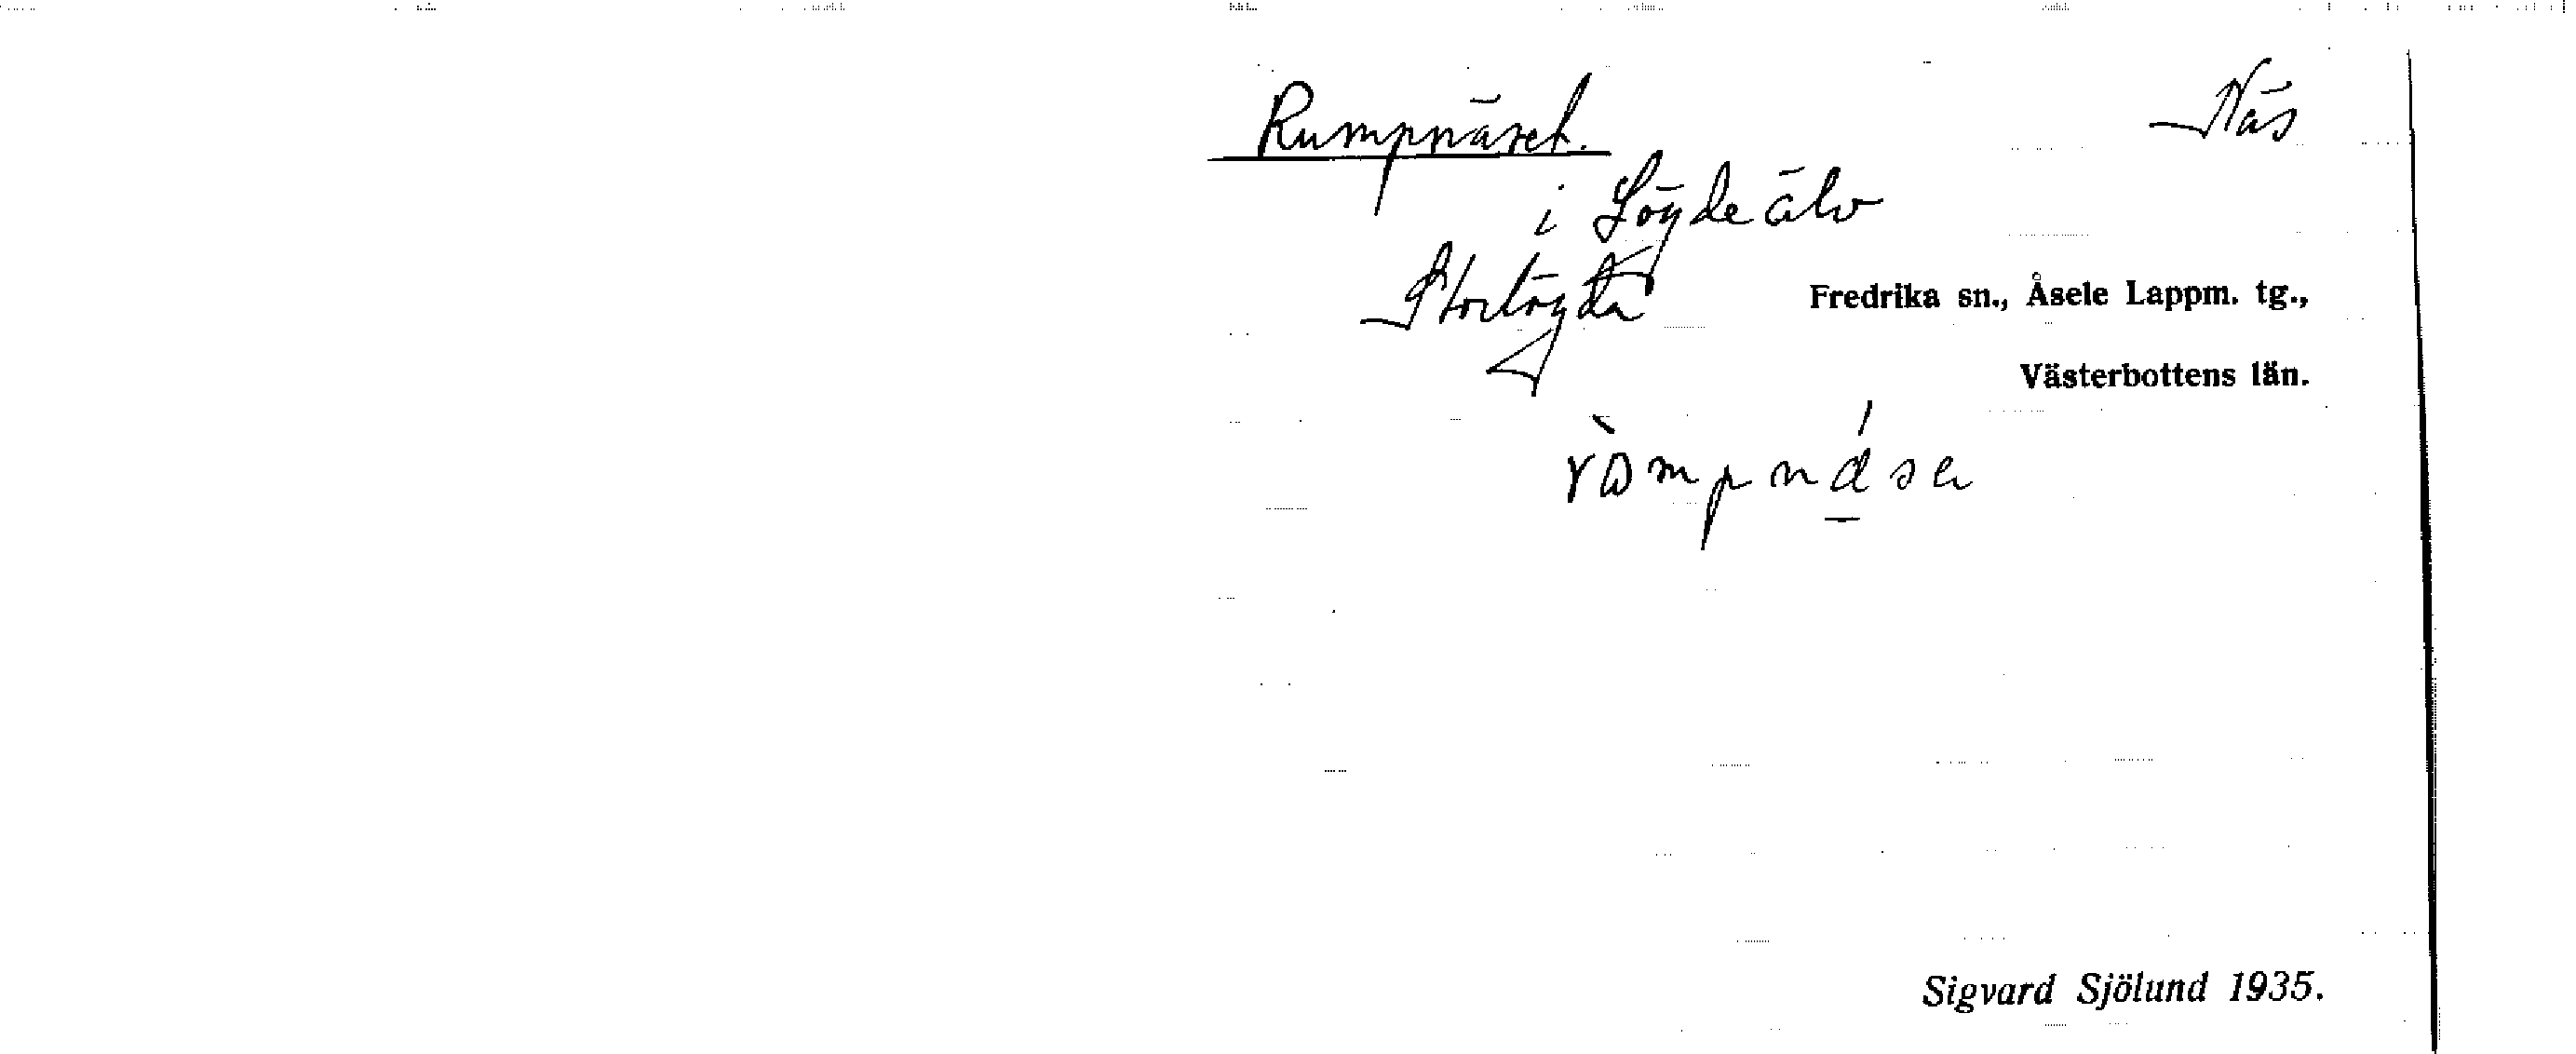 Rumpnäset. Näs
i Lögdeälv
Storlögda Fredrika sn., Åsele Lappm. tg.,
Västerbottens län.
Sigvard Sjölund 1935.